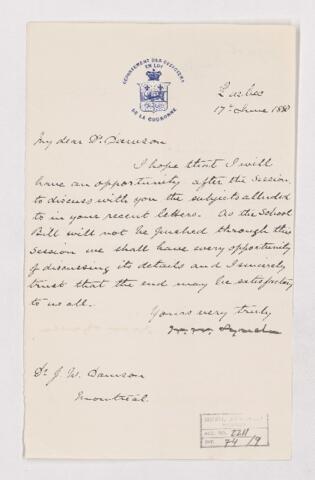 DEPARTEMENT DES OFFICIERS
EN LOI
DE LA COURONNE
Quebec
17th June 188
My dear Dr. Dawson
I hope that I will
have an opportunity after the Session,
to discuss with you the subjects alluded
to in your recent letters. As the School
Bill will not be pushed through this
Session we shall have every opportunity
of discussing its details and I sincerely
trust that the end may be satisfactory
to us all.
Yours very truly
Lynch
Dr J. W. Dawson
Montreal.
ACC. NO. 2211
REF. 74/9